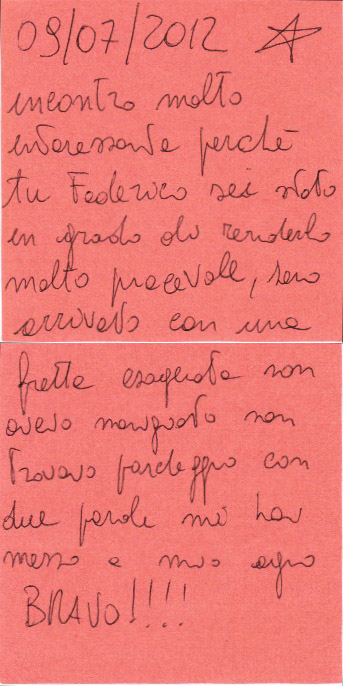 09/07/2012
incontro molto
interessante perchè
tu Federico sei stato
in grado di renderlo
molto piacevole, sono
arrivato con una
fretta esagerata non
avevo mangiato non
trovavo parcheggio con
due parole mi hai
messo a mio agio
BRAVO!!!!